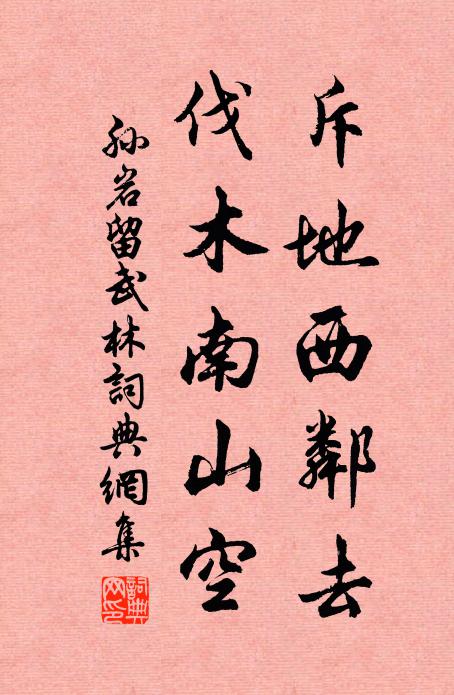 斥地西鄰去
伐木南山空
孙岩留武林詞典網集
詞典網印